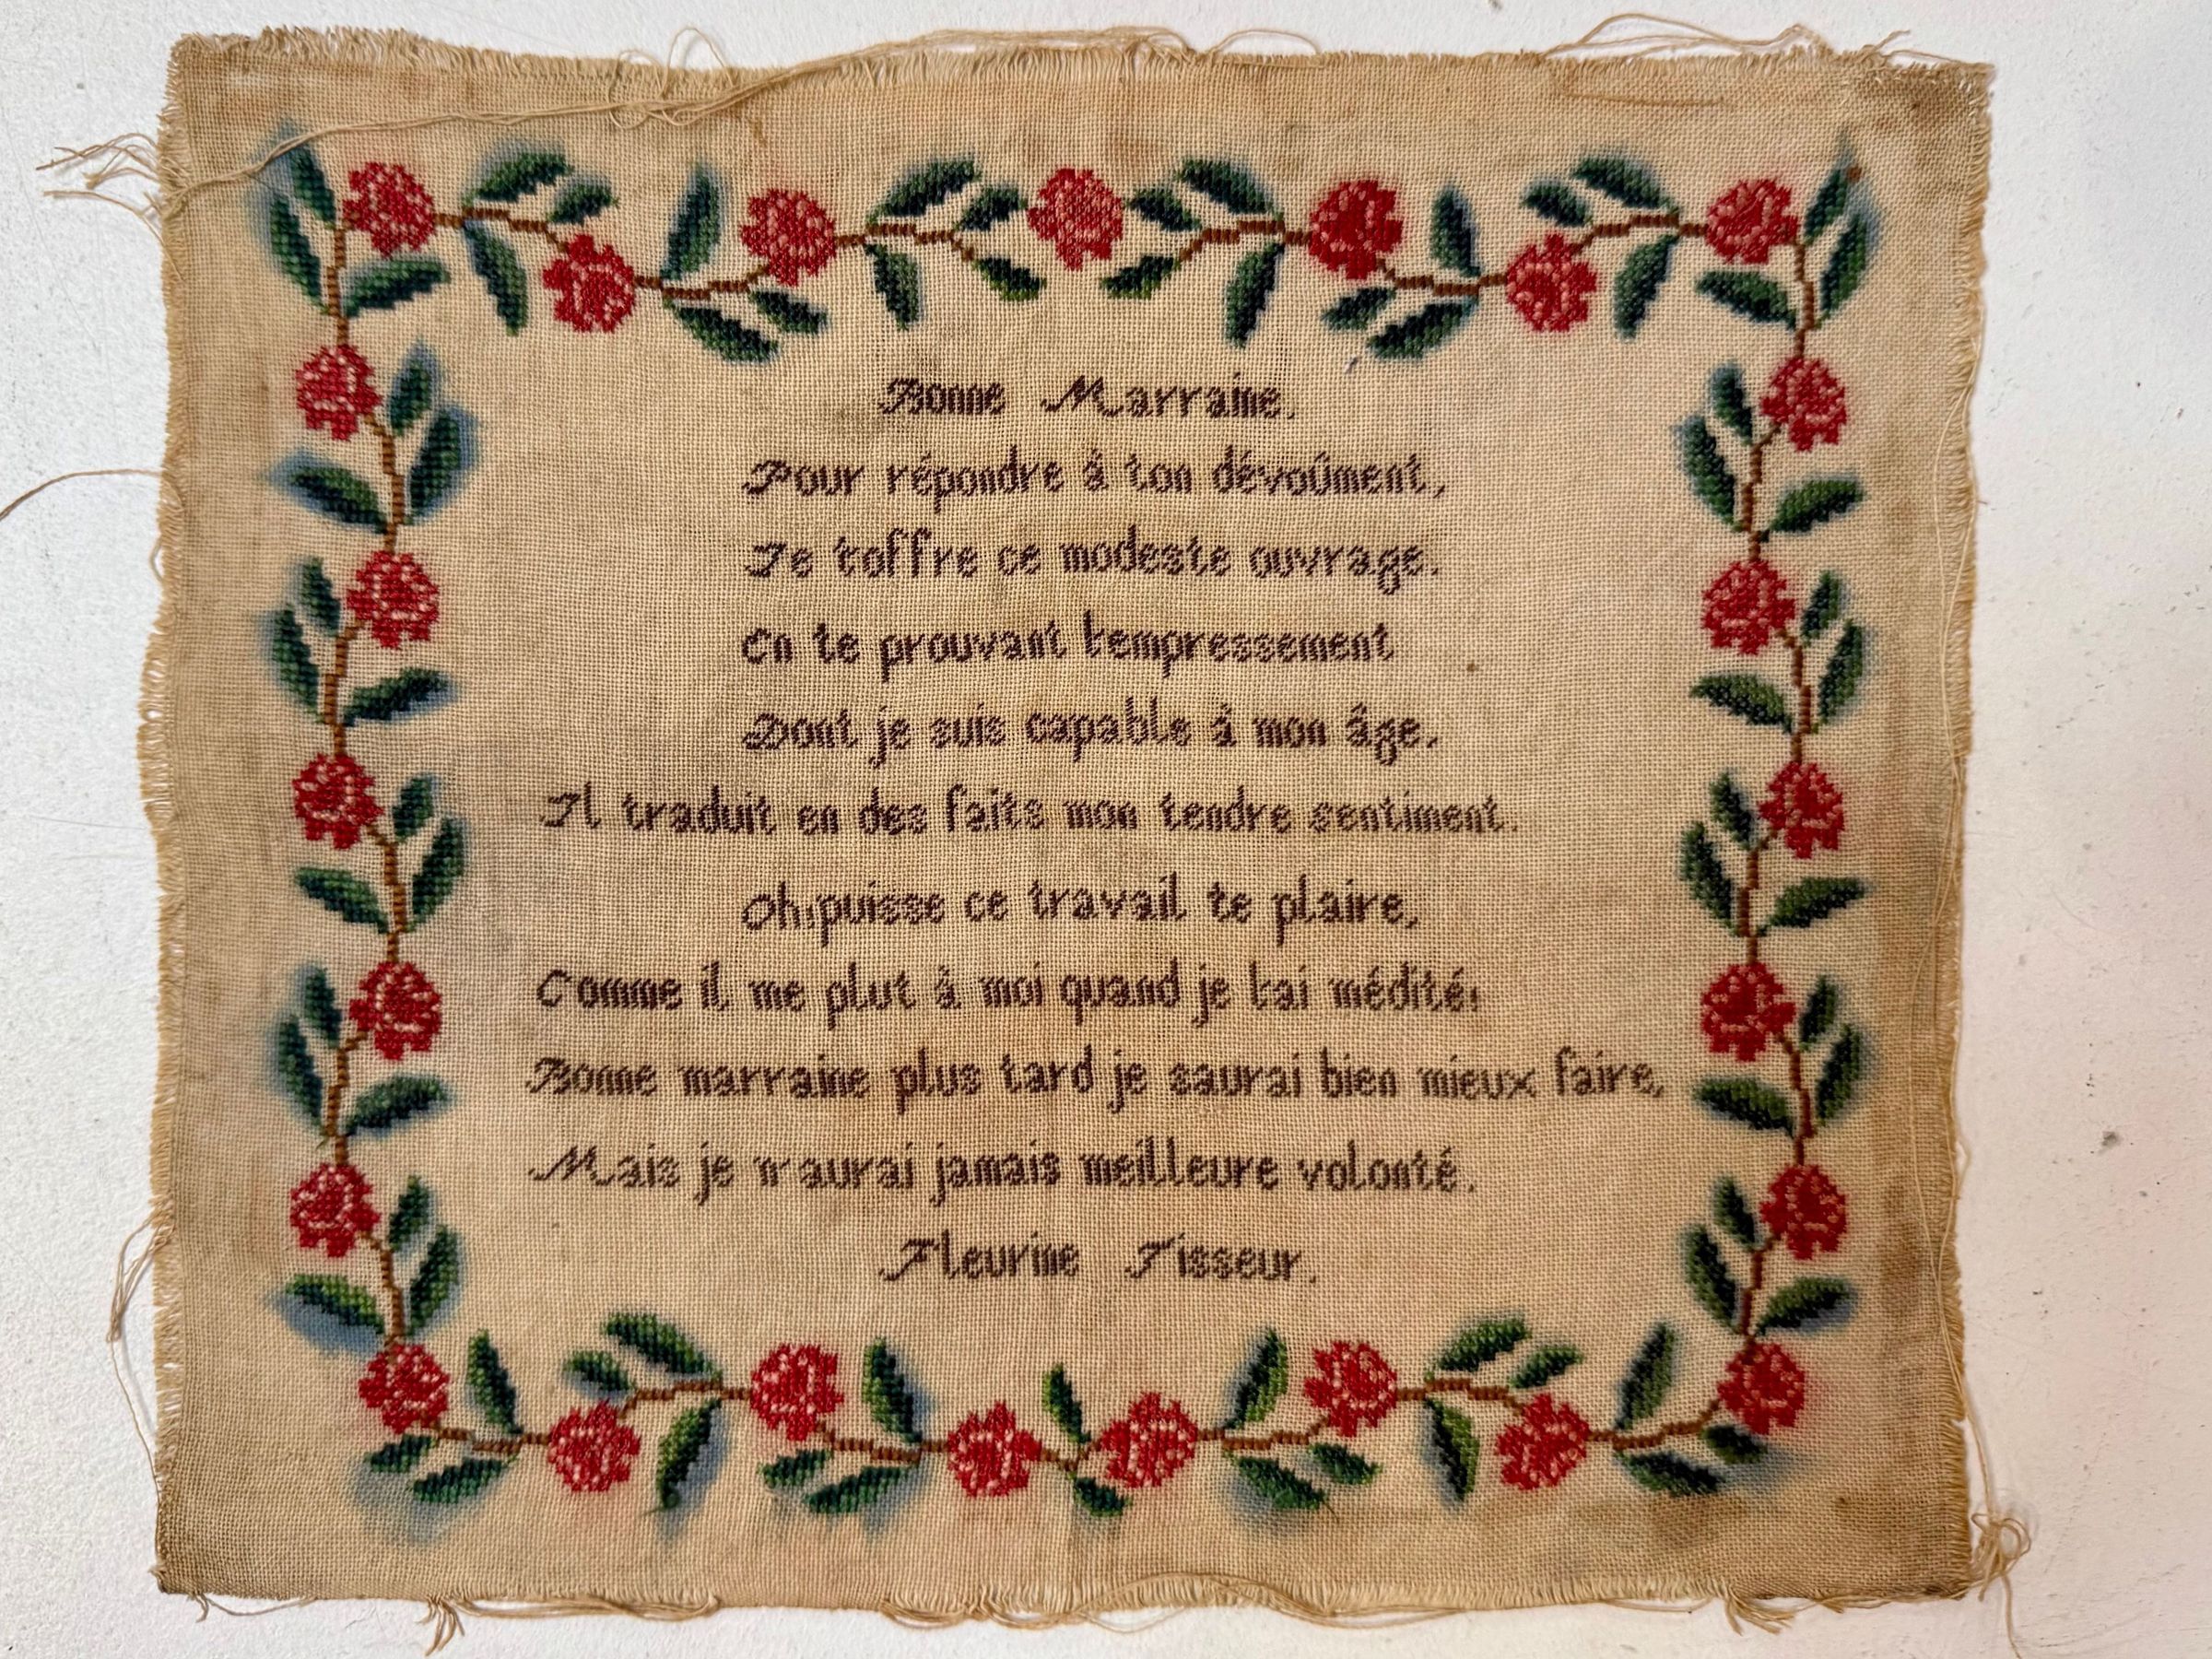 Bonne Marraine.
Pour répondre à ton dévoûment,
Je t'offre ce modeste ouvrage.
En te prouvant l'empressement
Dont je suis capable à mon âge.
Il traduit en des faits mon tendre sentiment.
Oh! puisse ce travail te plaire,
Comme il me plut à moi quand je l'ai médité!
Bonne marraine plus tard je saurai bien mieux faire,
Mais je n'aurai jamais meilleure volonté.
Fleurine Tisseur.